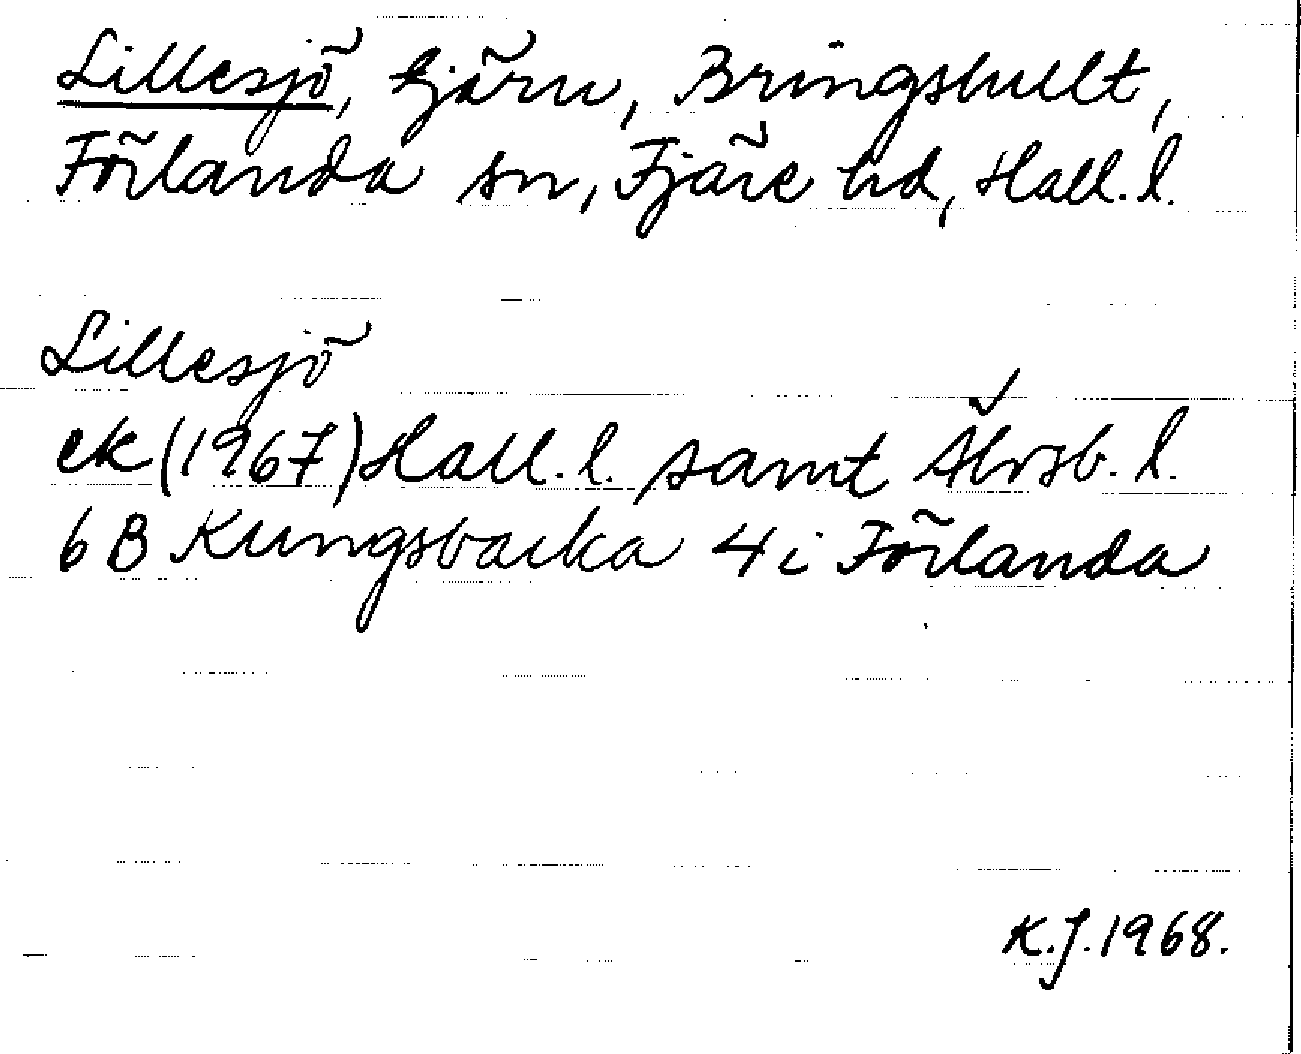 Lillesjö, tjärn, Bringshult,
Förlanda sn, Fjäre hd, Hall. l.
Lillesjö
ek (1967) Hall. l. samt Älvsb. l.
6 B Kungsbacka 4 i Förlanda
K.J. 1968.